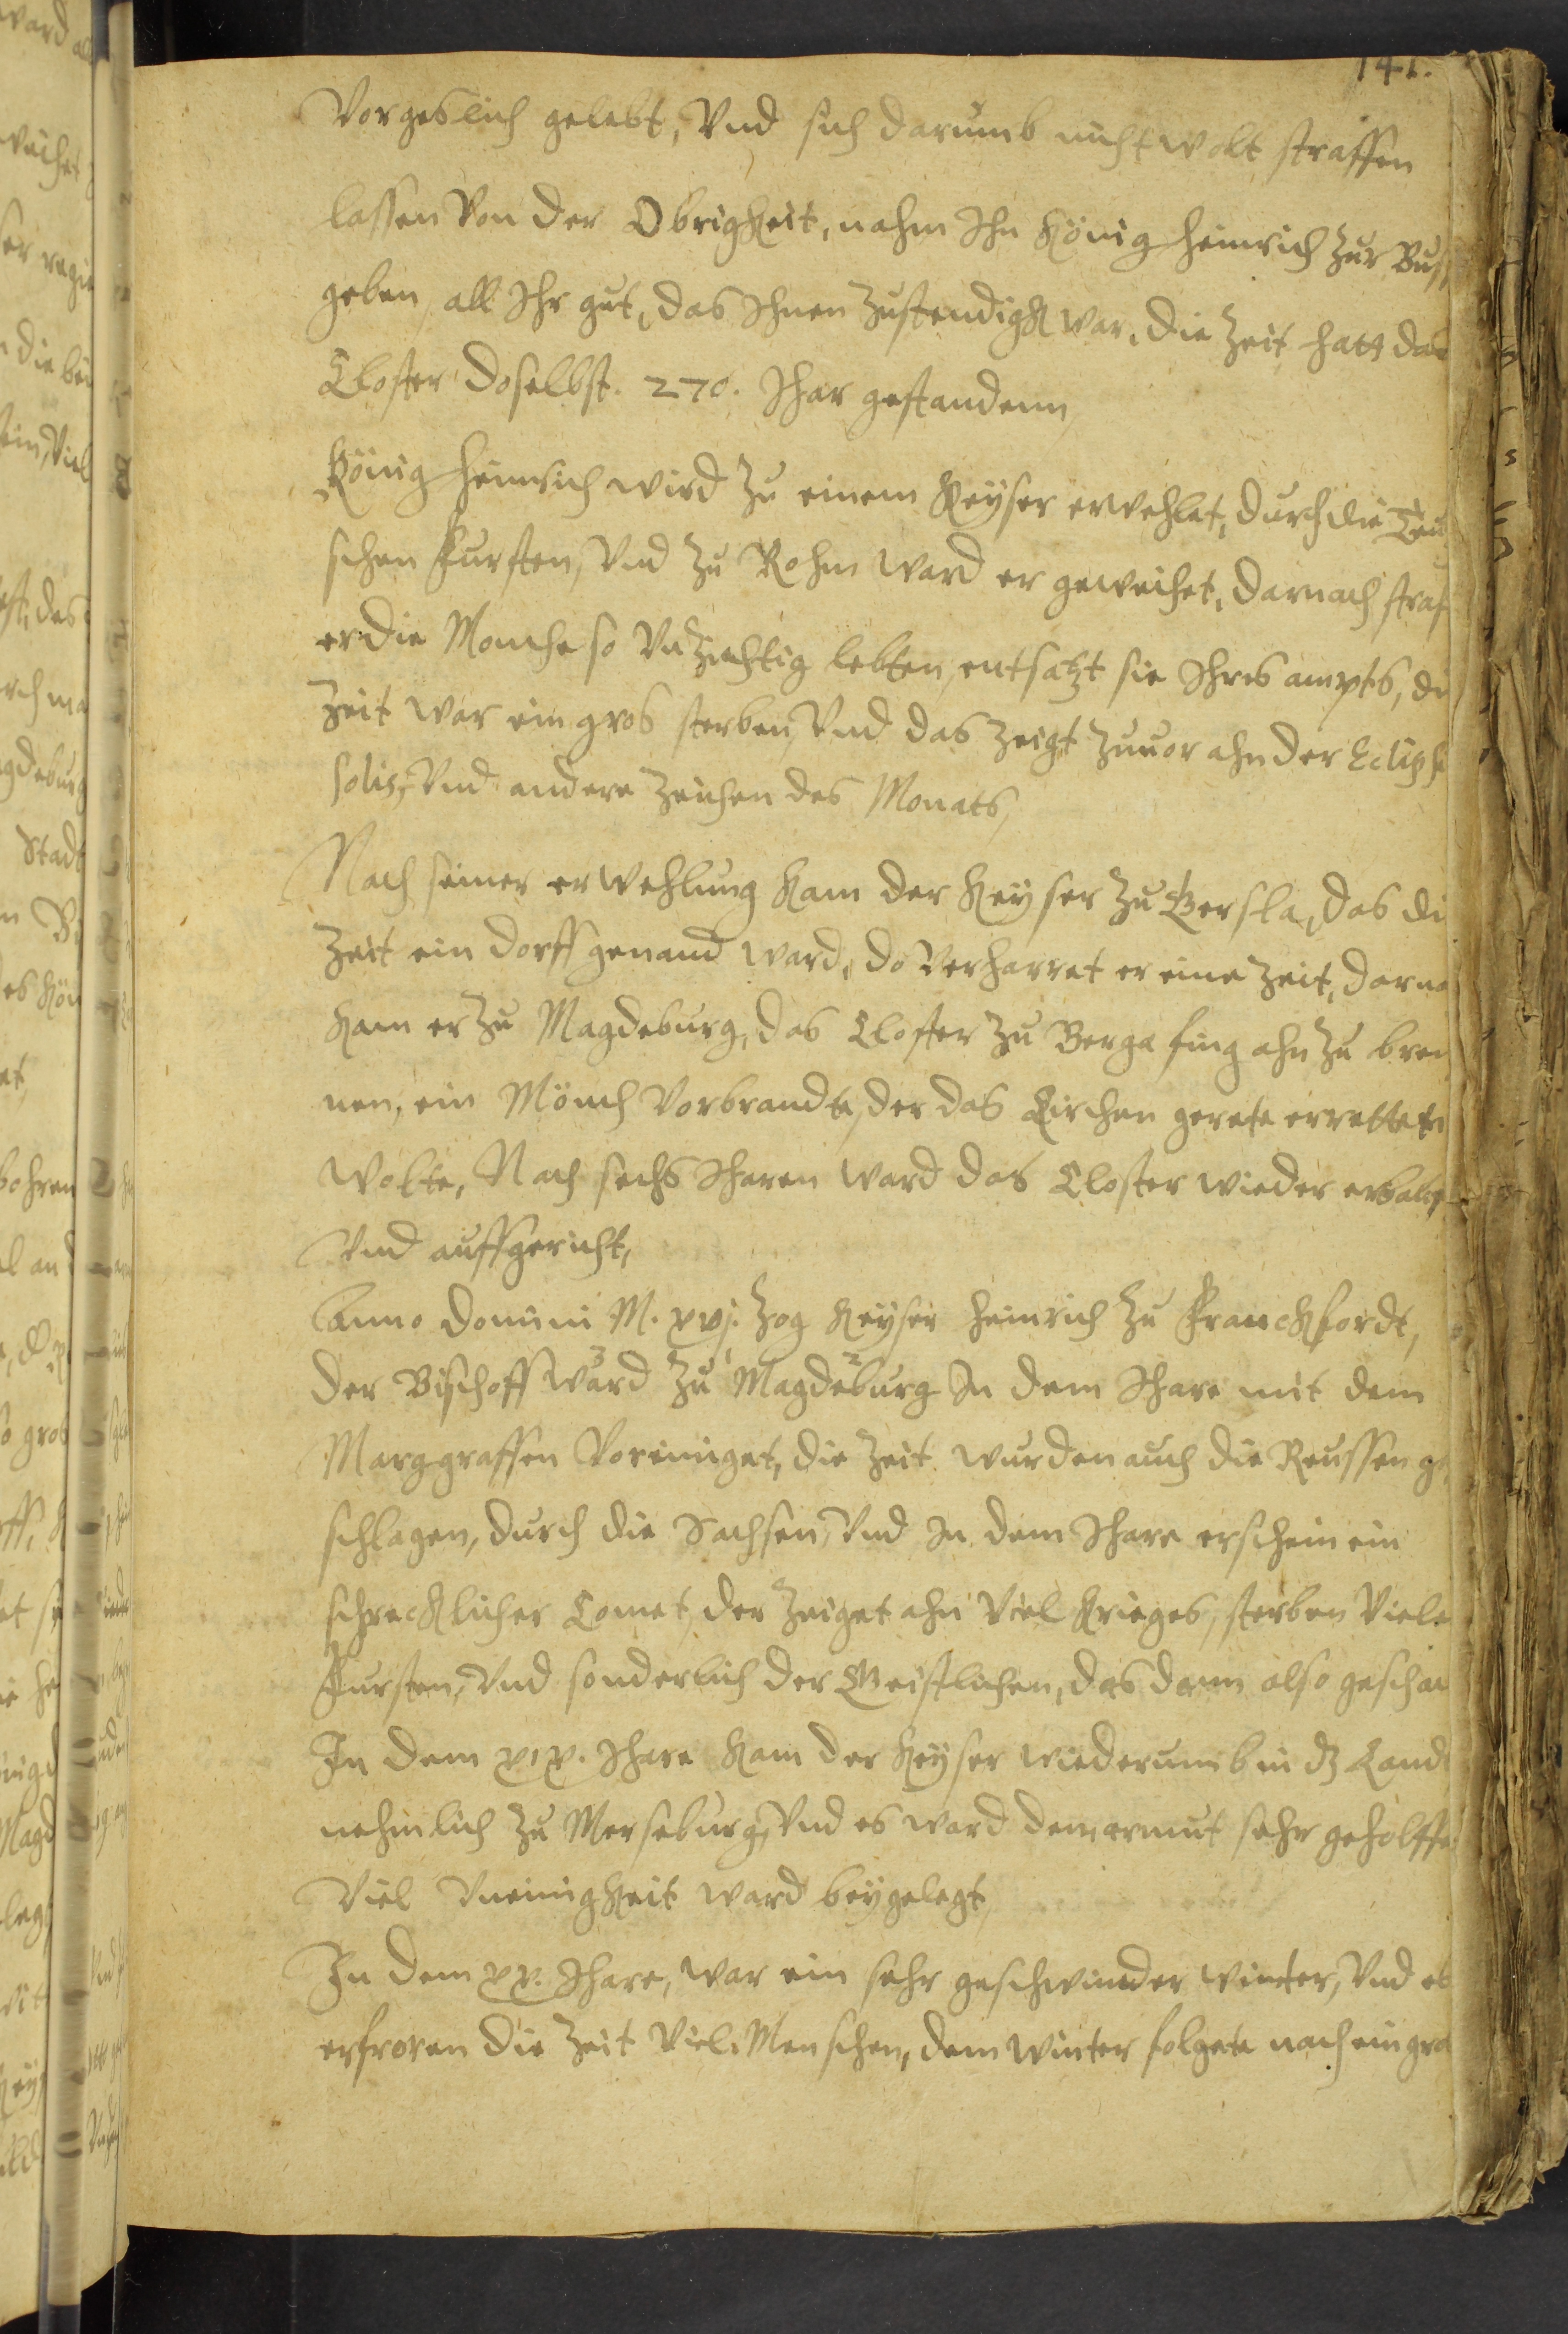 141.
Vorgeslich gelebt, Vnd sich darumb nicht wolt straffen
lassen Von der Obrigkeit, nahm Ihn König Heinrich Zur Bus
geben all Ihr gut, das Ihnen Zustendigk war, die Zeit hatt das
Closter doselbst. 270. Ihar gestandenn,
König Heinrich wird Zu einem Keyser erwehlet, durch die Teu
schen Fursten, Vnd Zu Rohm ward er geweihet, darnach straf
er die Monche so Vnzuchtig lebten, entsatzt sie Ihres ampts, di
Zeit war ein gros sterben, Vnd das Zeigt Zuuor ahn der Eclips
solis, Vnd andere Zeichen des Monats,
Nach seiner erwehlung kam der Keyser Zu Gersla, das di
Zeit ein dorff genand ward, do verharret er eine Zeit, darna
kam er Zu Magdeburg, das Closter Zu Berga fing ahn Zu bren
nen, ein Mönch Vorbrandte, der das Kirchen gerete erretten
wolte, Nach sechs Iharen ward das Closter wieder erbaut
Vnd auffgericht,
Anno Domini M. xvj. Zog Keyser Heinrich Zu Franckfordt,
der Bischoff ward Zu Magdeburg In dem Ihare mit dem
Marggraffen Voreiniget, die Zeit wurden auch die Reussen ge
schlagen, durch die Sachsen, Vnd In dem Ihare erschein ein
schrecklicher Comet, der Zeiget ahn Viel Krieges, sterben Viele
Fursten, Vnd sonderlich der Geistlichen, das dann also geschac
In dem xix. Ihare kam der Keyser wiederumb in dz Land
nehmlich Zu Merseburg, Vnd es ward dem armut sehr geholffe
Viel Vneinigkeit ward beygelegt,
In dem xx. Ihare, war ein sehr geschwinder winter, Vnd es
erfroren die Zeit Viel Menschen, dem winter folgete nach ein gro